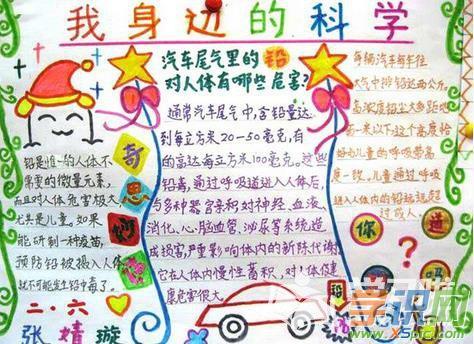 我身边的科学
铅是惟一的人体不
需要的微量元素,
而且对人体危害极大
尤其是儿童。如果
能研制一种疫苗,
预防铅被摄入人体
就不可能发生铅中毒了。
奇
思
妙
想
二·六
张婧漩
汽车尾气里的铅
对人体有哪些危害?
通常汽车尾气中,含铅量达
到每立方米20-50毫克,有
的高达每立方米100毫克。这些
铅高,通过呼吸道进入人体后,
与多种器官亲和对神经、血液、
消化、心、脑血管、泌尿等系统造
成损害,严重影响体内的新陈代谢
它在人体内慢性蓄积,对人体健
康危害很大。
每辆汽车每年往
大气中排铅达两公斤。
高浓度铅尘大多距地
一米以下,这个高度恰
好与儿童的呼吸带高
度一致,儿童通过呼吸
进入人体内的铅远远超
过成人。
你
知
道
吗
?
铅
学识网
www.xspic.com